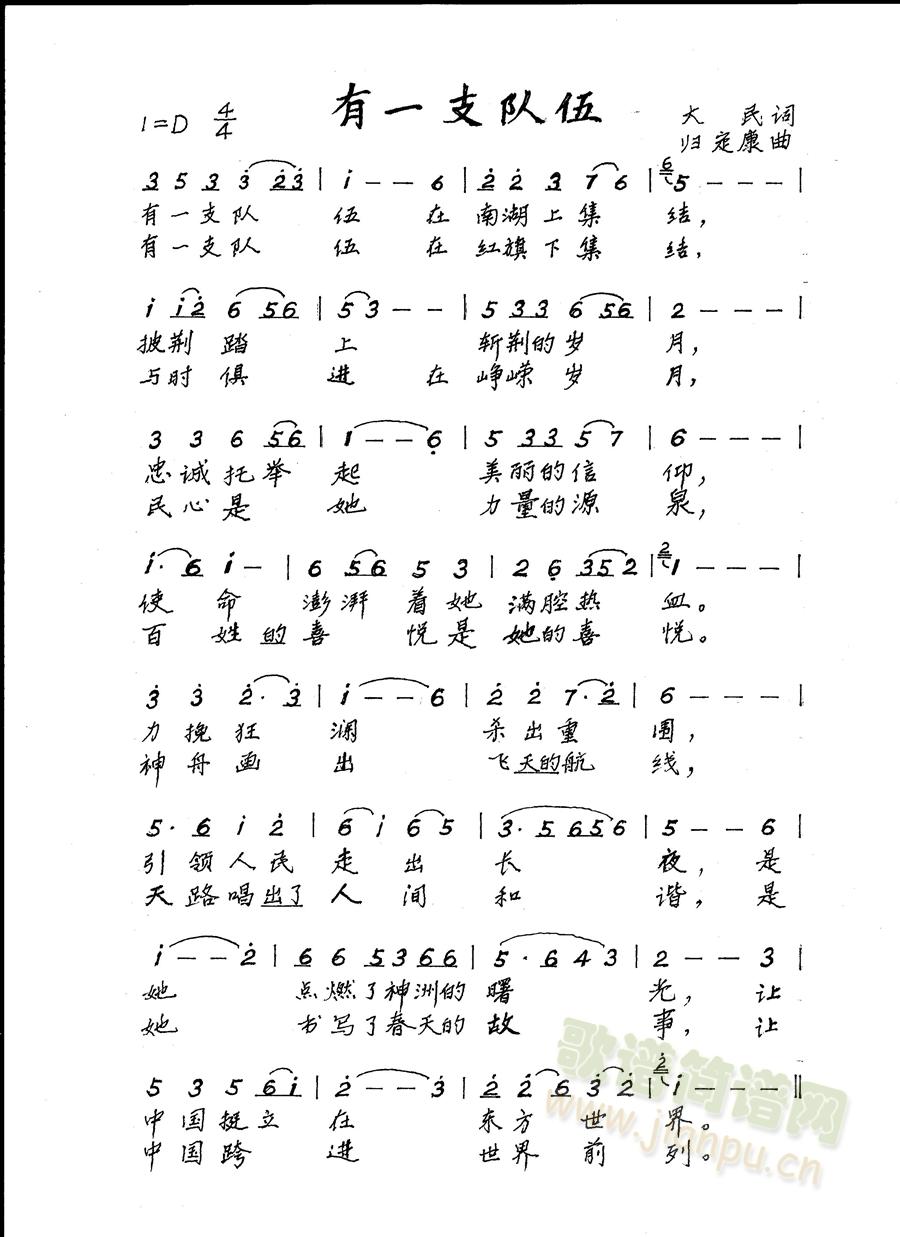 有一支队伍
1=D 4/4
大 民词
归定康曲
3 5 3 3 2 3 | i - - 6 | 2 2 3 7 6 | 5 - - - |
有一支队 伍 在 南湖上集 结，
有一支队 伍 在 红旗下集 结，
i i 2 6 5 6 | 5 3 - - | 5 3 3 6 5 6 | 2 - - - |
披荆 踏 上 斩荆的岁 月，
与时 俱 进 在 峥嵘 岁 月，
3 3 6 5 6 | 1 - - 6 | 5 3 3 5 7 | 6 - - - |
忠诚托举 起 美丽的信 仰，
民心是 她 力量的源 泉，
i · 6 i - | 6 5 6 5 3 | 2 6 3 5 2 | 2 1 - - - |
使 命 澎湃 着她 满腔热 血。
百 姓的喜 悦是 她的喜 悦。
3 3 2 · 3 | i - - 6 | 2 2 7 · 2 | 6 - - - |
力挽狂 澜 杀出重 围，
神舟画 出 飞天的航 线，
5 · 6 i 2 | 6 i 6 5 | 3 · 5 6 5 6 | 5 - - 6 |
引领人民 走 出 长 夜，是
天路唱出了 人 间 和 谐，是
i - - 2 | 6 6 5 3 6 6 | 5 · 6 4 3 | 2 - - 3 |
她 点燃了神洲的 曙 光，让
她 书写了春天的 故 事，让
5 3 5 6 i | 2 - - 3 | 2 2 6 3 2 | 2 i - - - ‖
中国挺立 在 东方 世 界。
中国跨 进 世界 前 列。
歌谱简谱网
www.jianpu.cn